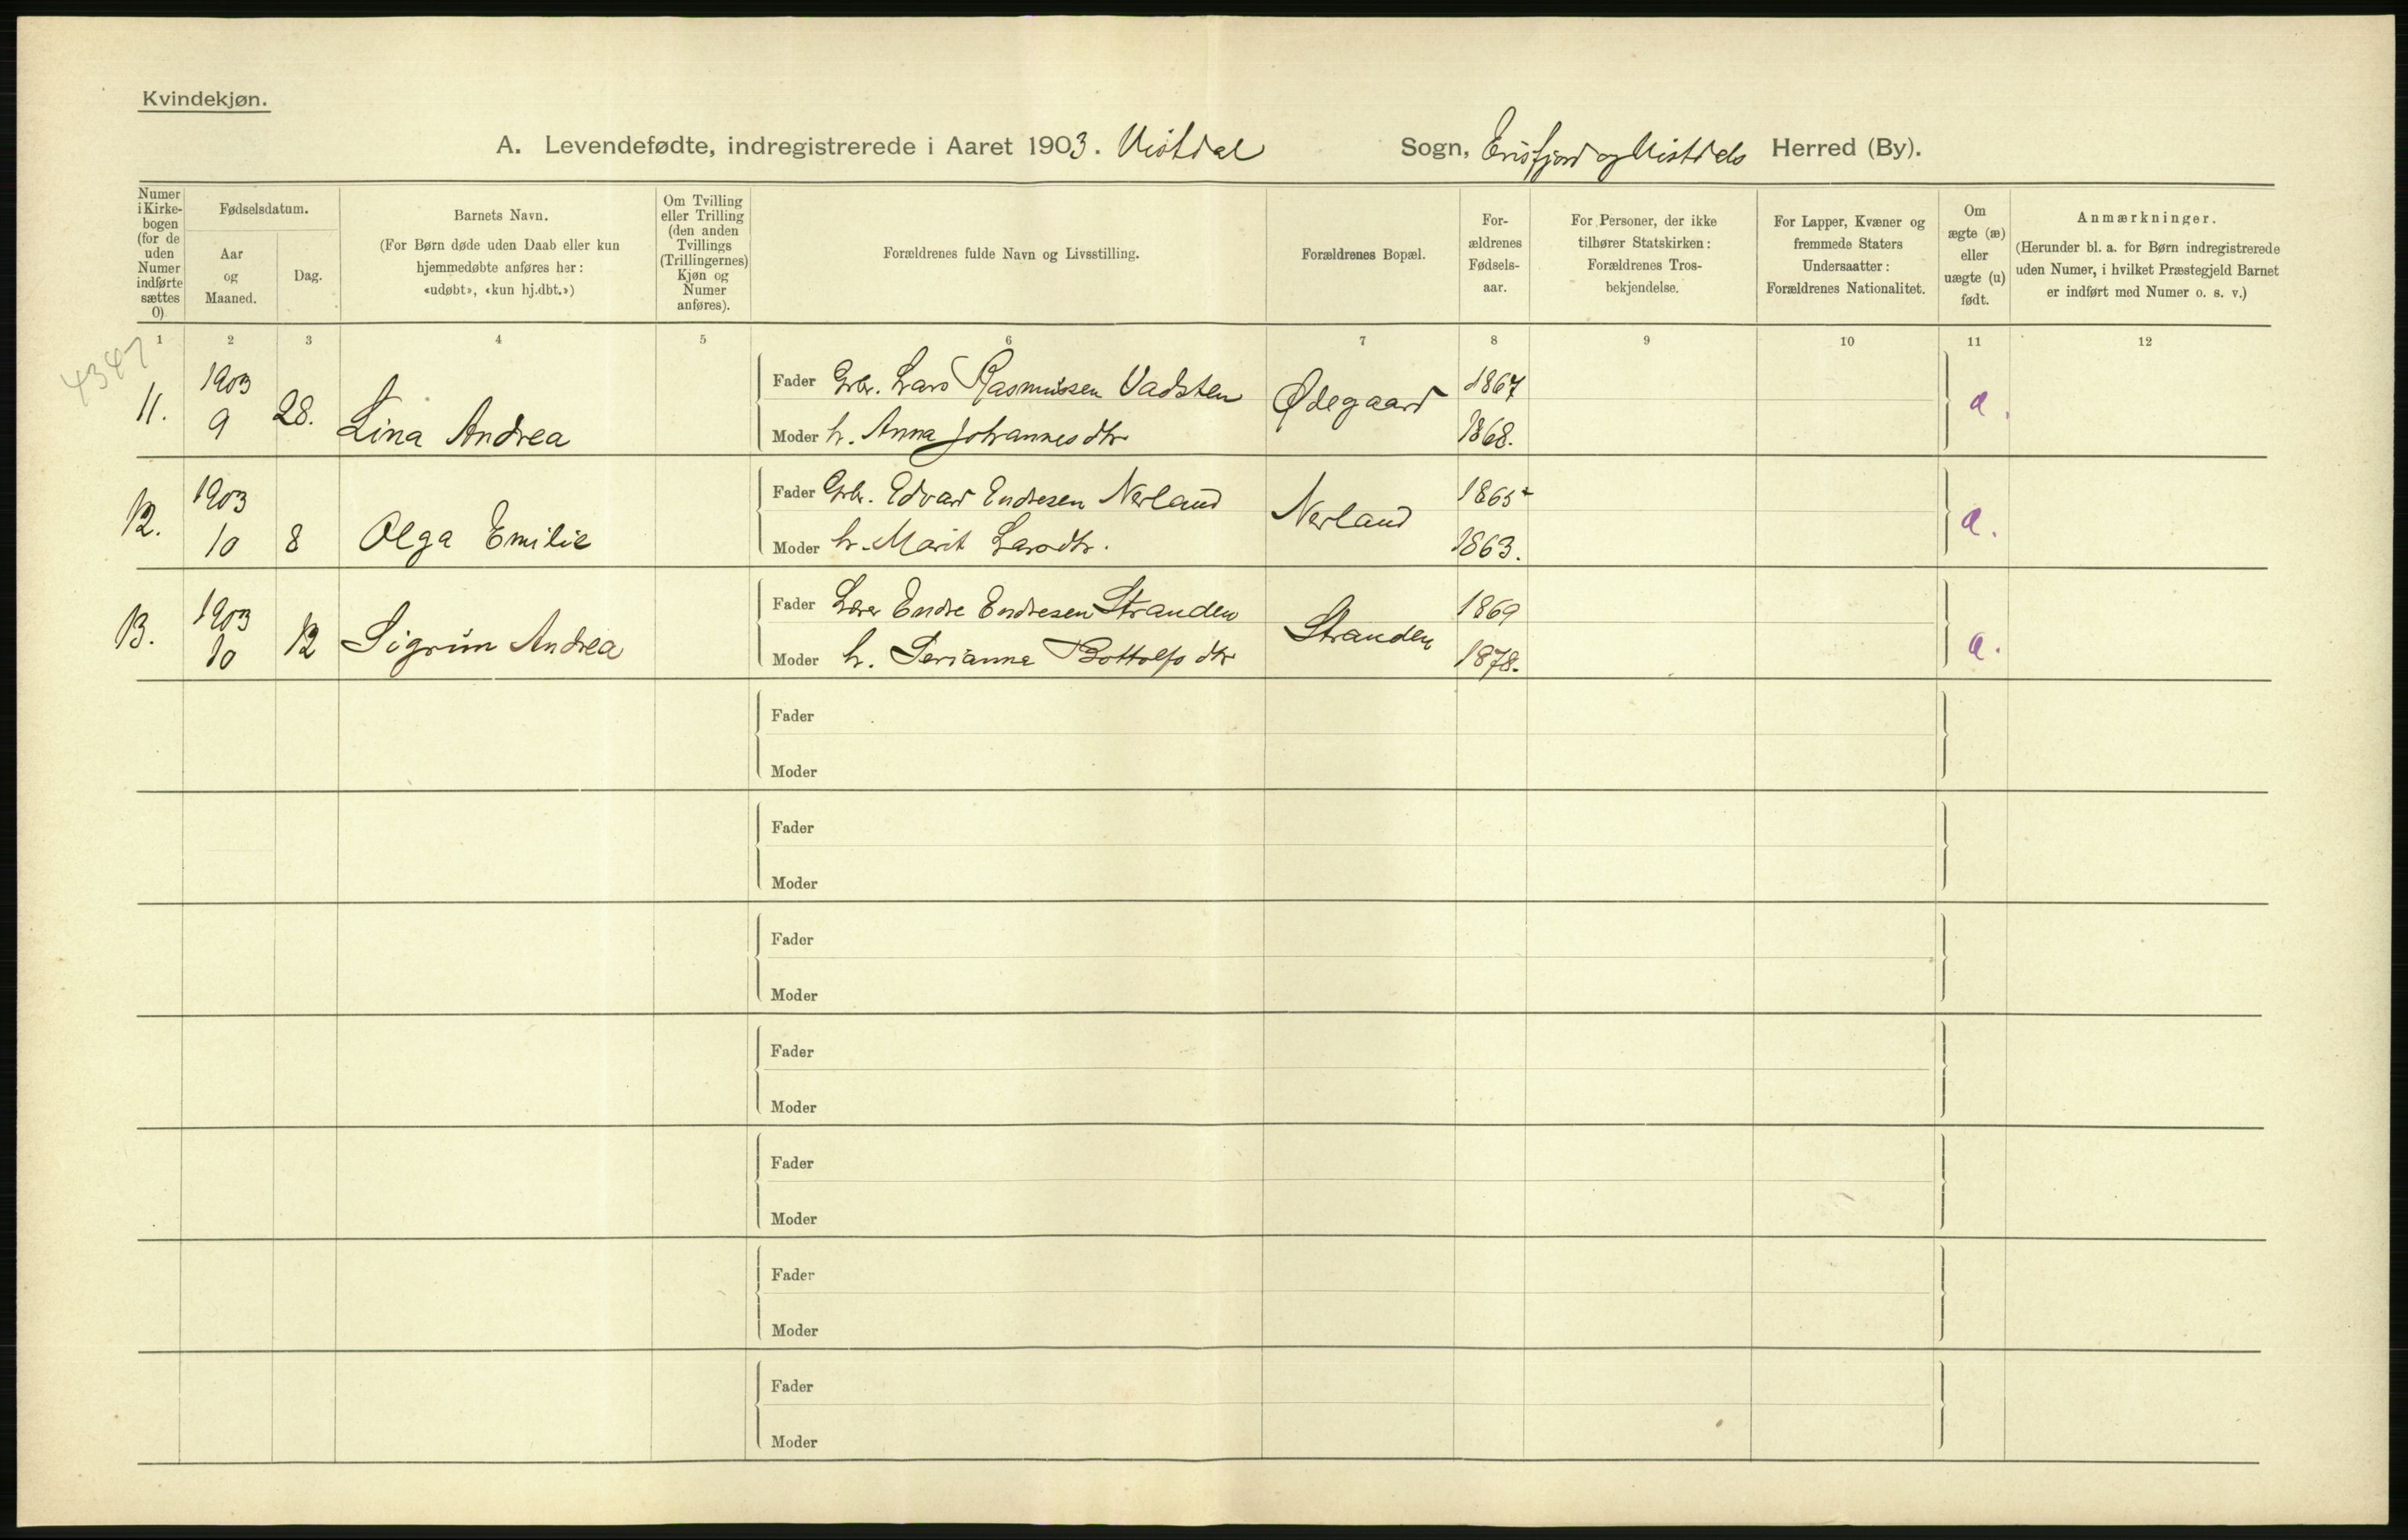 Kvindekjøn.
A. Levendefødte, indregistrerede i Aaret 1903. Vistdal Sogn, Erisfjord og Vistdals Herred (By).
Numer i Kirke-bogen (for de uden Numer indførte sættes 0)
Fødselsdatum.
Aar og Maaned.
Dag.
Barnets Navn.
(For Børn døde uden Daab eller kun
hjemmedøbte anføres her:
«udøbt», «kun hj.dbt.»)
Om Tvilling
eller Trilling
(den anden
Tvillings
(Trillingernes)
Kjøn og
Numer
anføres).
Forældrenes fulde Navn og Livsstilling.
Forældrenes Bopæl.
For-
ældrenes
Fødsels-
aar.
For Personer, der ikke
tilhører Statskirken:
Forældrenes Tros-
bekjendelse.
For Lapper, Kvæner og
fremmede Staters
Undersaatter:
Forældrenes Nationalitet.
Om
ægte (æ)
eller
uægte (u)
født.
Anmærkninger.
(Herunder bl. a. for Børn indregistrerede
uden Numer, i hvilket Præstegjeld Barnet
er indført med Numer o. s. v.)
1 2 3 4 5 6 7 8 9 10 11 12
4347
11. 1903 9 28. Lina Andrea
Fader Grbr. Lars Rasmussen Vadsten Ødegaard 1867
Moder h. Anna Johannesdtr 1868.
æ.
12. 1903 10 8 Olga Emilie
Fader Grbr. Edvard Endresen Nerland Nerland 1865
Moder h. Marit Larsdtr. 1863.
æ.
13. 1903 10 12 Sigrun Andrea
Fader Lærer Endre Endresen Stranden Stranden 1869
Moder h. Serianna Bottolfs dtr 1878.
æ.
Fader
Moder
Fader
Moder
Fader
Moder
Fader
Moder
Fader
Moder
Fader
Moder
Fader
Moder